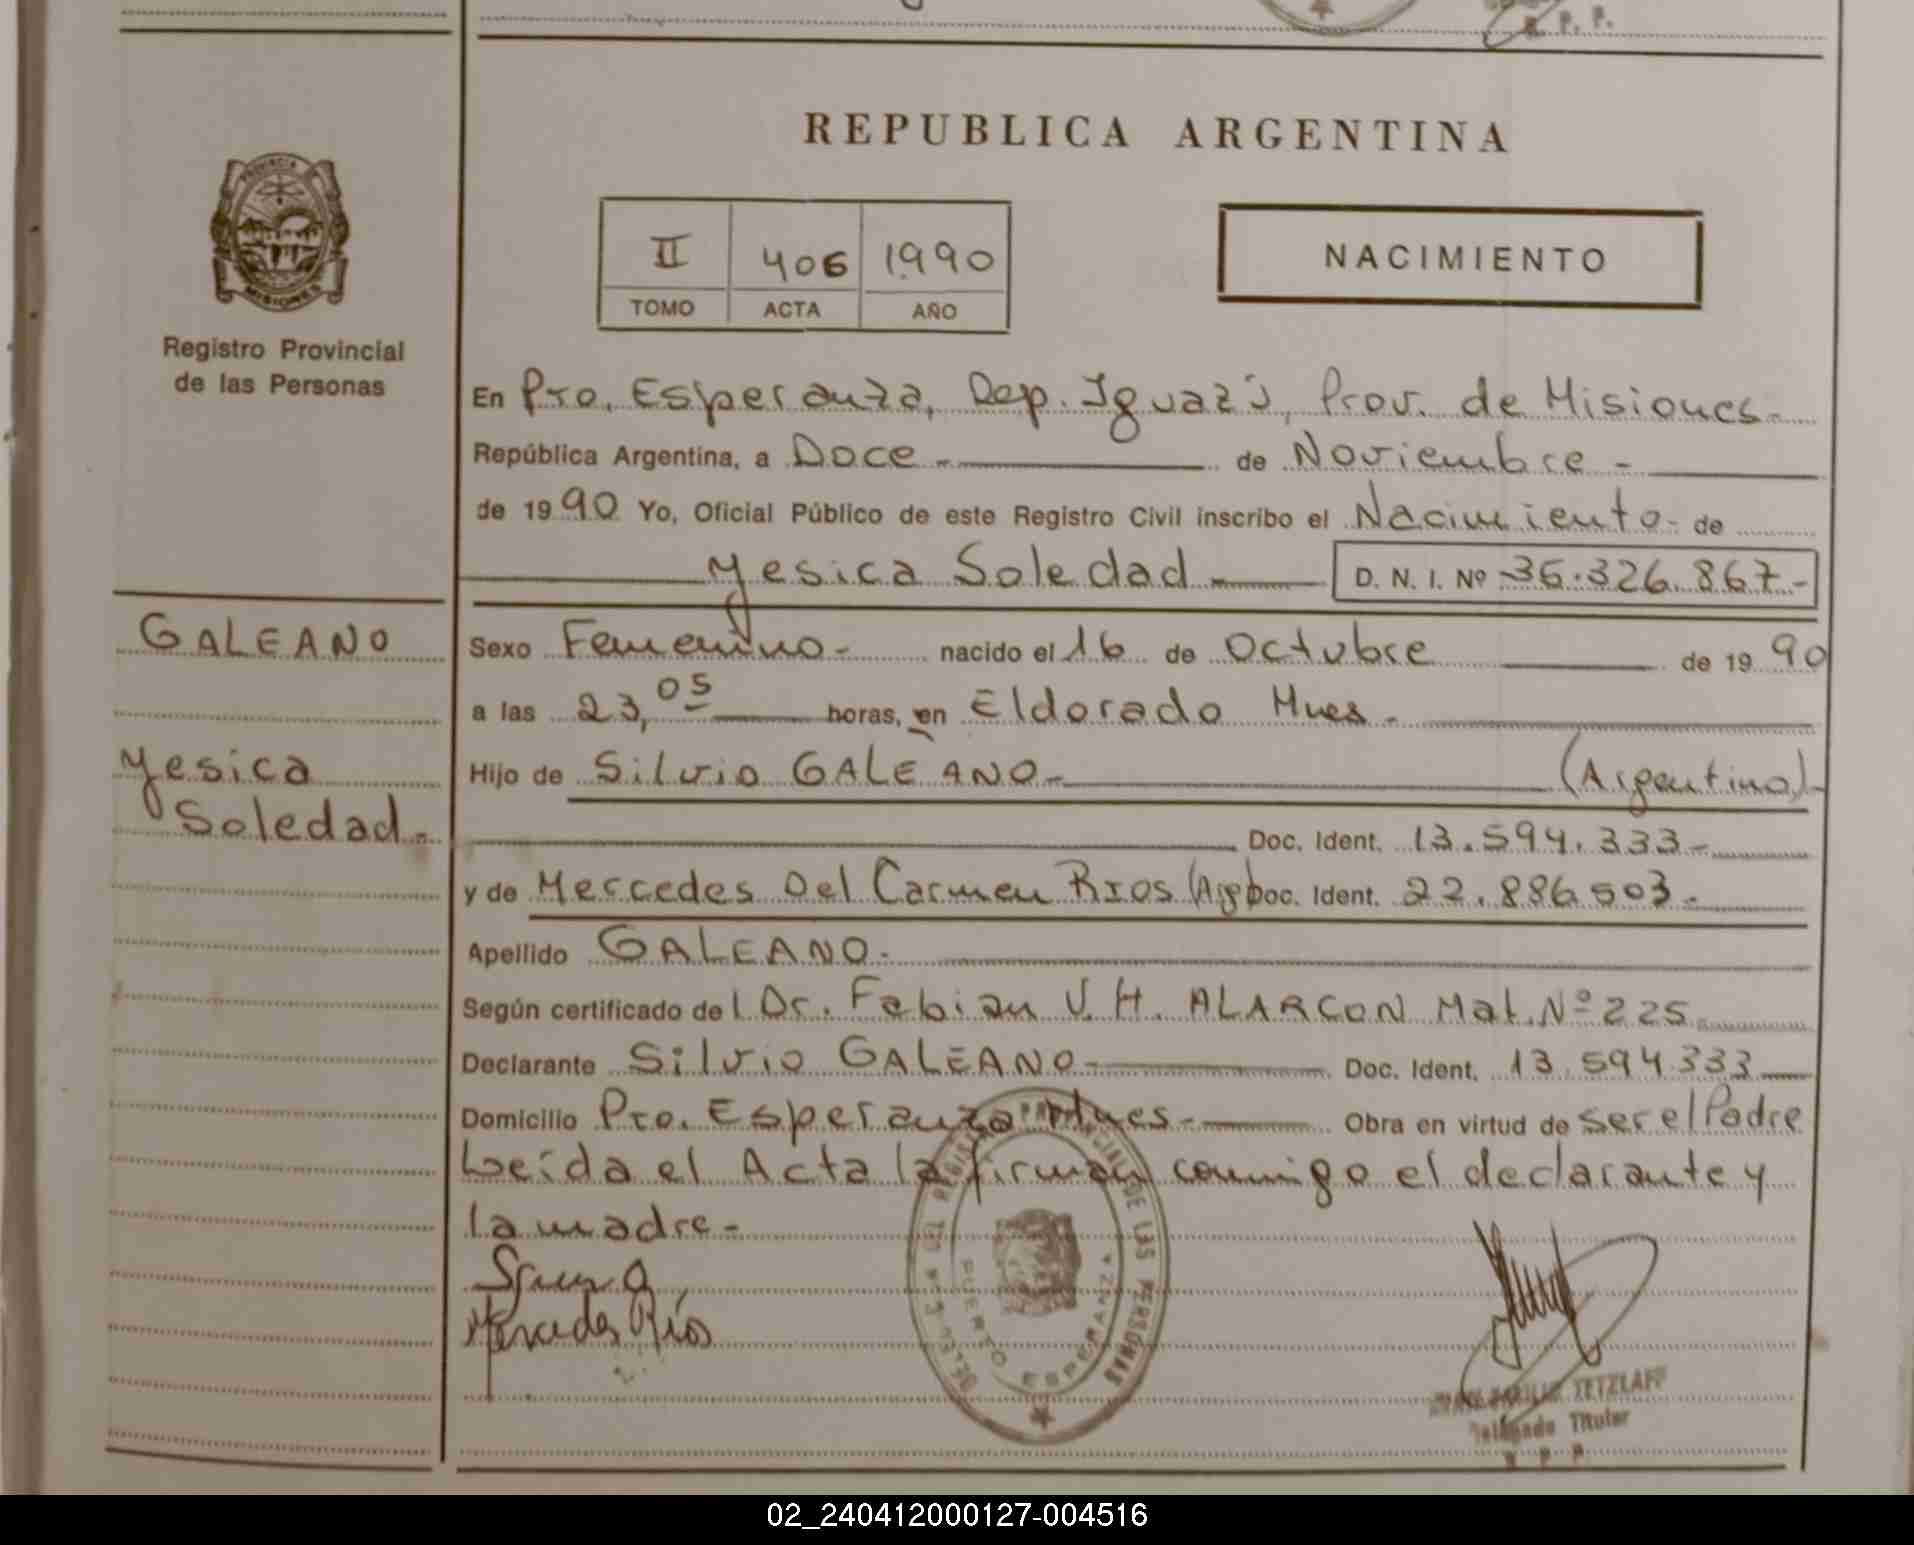 R. P. P.
REPUBLICA ARGENTINA
PROVINCIA
MISIONES
II 406 1990
TOMO ACTA AÑO
NACIMIENTO
Registro Provincial
de las Personas
En Pto. Esperanza, Dep. Iguazú, Prov. de Misiones.-
República Argentina, a Doce - de Noviembre -
de 1990 Yo, Oficial Público de este Registro Civil inscribo el Nacimiento - de
Yesica Soledad - D. N. I. Nº 35.326.867-
GALEANO
Yesica
Soledad.-
Sexo Femenino - nacido el 16 de Octubre de 1990
a las 23,05 horas, en Eldorado Mnes.-
Hijo de Silvio GALEANO - (Argentino)-
Doc. Ident. 13.594.333-
y de Mercedes Del Carmen Rios (Arg) Doc. Ident. 22.886.503.-
Apellido GALEANO.-
Según certificado del Dr. Fabian V. H. ALARCON Mat. Nº 225
Declarante Silvio GALEANO - Doc. Ident. 13.594.333
Domicilio Pto. Esperanza Mnes - Obra en virtud de ser el Padre
Leída el Acta la firman conmigo el declarante y
la madre -
Mercedes Ríos
DEL REGISTRO PROVINCIAL DE LAS PERSONAS
PUERTO ESPERANZA
TETZLAFF
Delegado Titular
R. P. P.
02_240412000127-004516